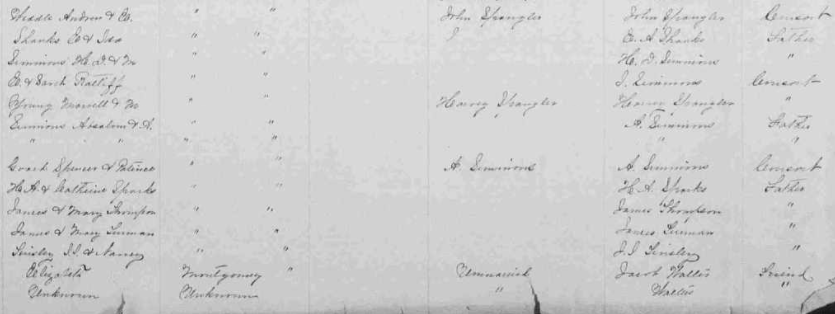 Weddle Andrew & C. " " John Spangler John Spangler Consort
Shanks C & Ida " " C. A. Shanks Father
Simmons H. D. & M " " H. D. Simmons "
C. & Sarah Ratliff " " J. Simmons Consort
Young & M " " Harvey Spangler Harvey Spangler "
Simmons Absalom & A. " " A. Simmons Father
" " " "
Spencer & " " A. Simmons A. Simmons Consort
H. A. & Catherine Sparks " " H. A. Sparks Father
James & Mary Thompson " " James Thompson "
James & Mary Turman " " James Turman "
Tinsley J. J. & Nancy " " J. J. Tinsley "
Elizabeth Montgomery " Unmarried Jacob Walters Friend
Unknown Unknown " Walters "